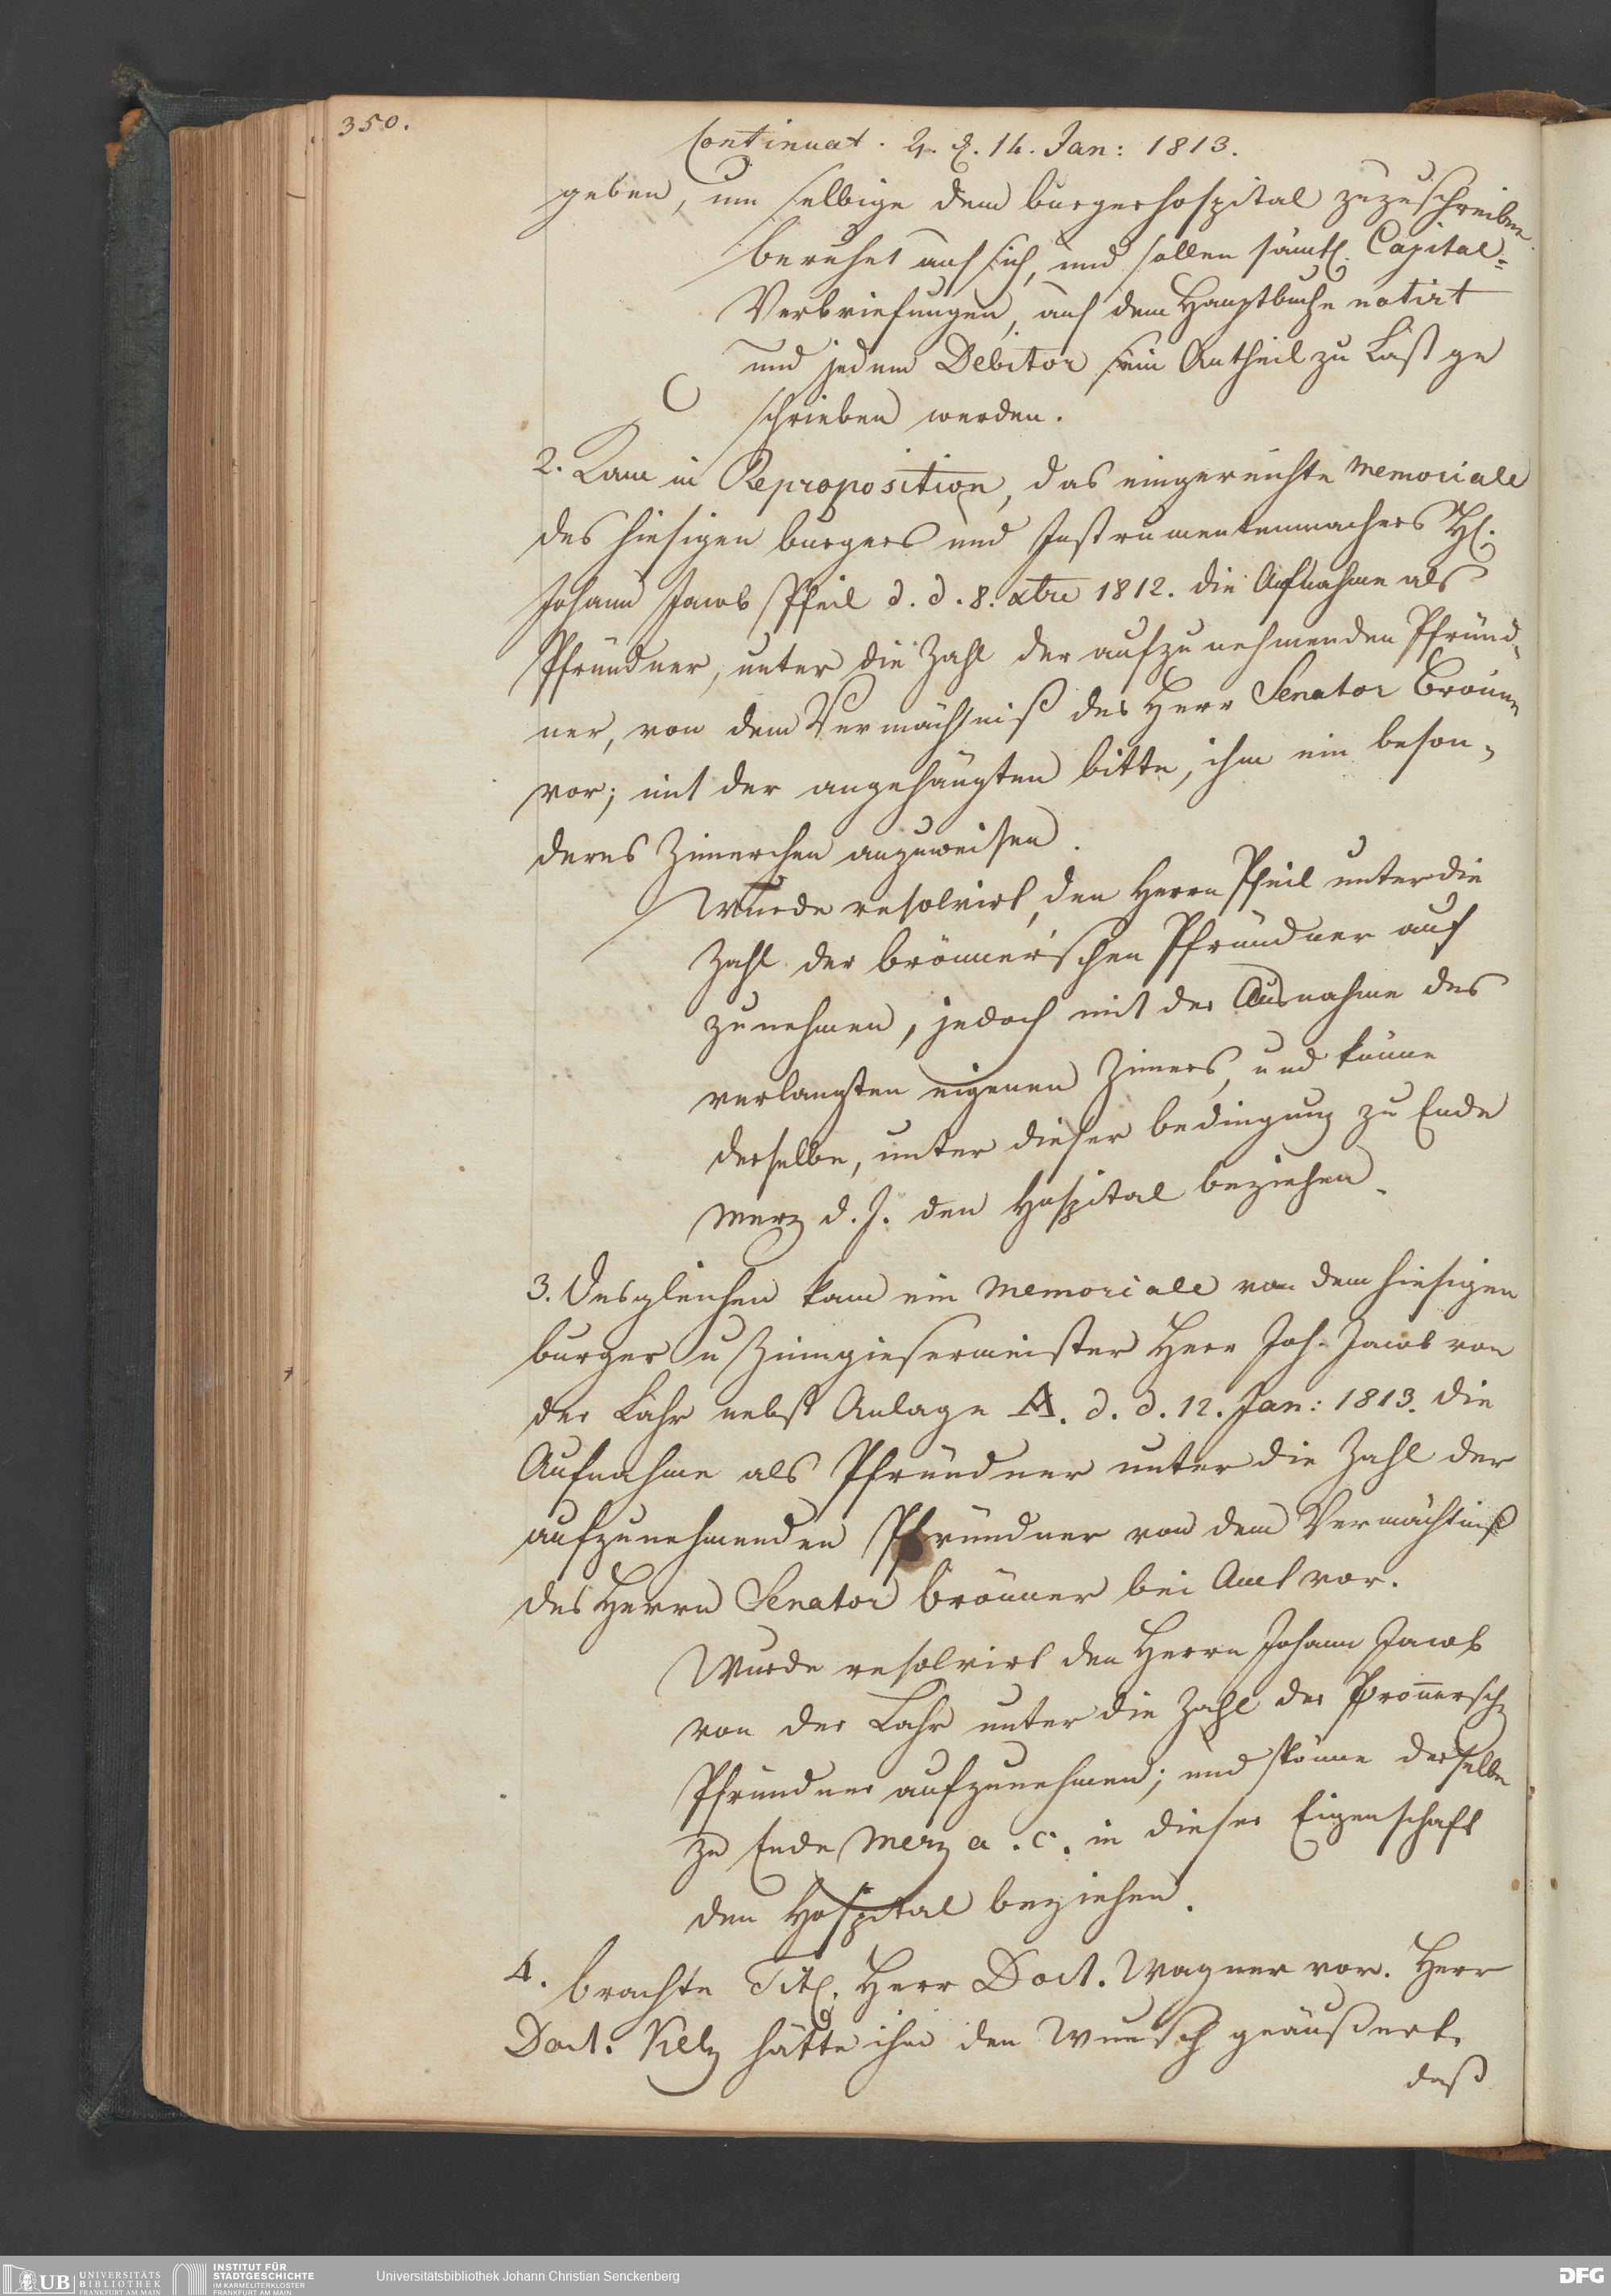 350.
Continuat. ♃. d. 14. Jan: 1813.
geben, um selbige dem burgerhospital zuzuschreiben
beruhet auf sich, und sollen sämtl. Capital=
Verbriefungen, auf dem Hauptbuche notirt
und jedem Debitor sein Antheil zu Last ge
schrieben werden.
2. Kam in Reproposition, das eingereichte Memoriale
des hiesigen burgers und Instrumentenmachers H.
Johann Jacob Pfeil d. d. 8. xbre 1812. die Aufnahme als
Pfründner, unter die Zahl der aufzunehmenden Pfründ,
ner, von dem Vermächtniß des Herr Senator Brönner
vor; mit der angehängten bitte, ihm ein beson,
deres Zimerchen anzuweisen.
Wurde resolvirt, den Herrn Pfeil unter die
Zahl der brönner'schen Pfründner auf
zunehmen, jedoch mit der Ausnahme des
verlangten eigenen Zimers, und könne
derselbe, unter dieser bedingung zu Ende
Merz d. J. den Hospital beziehen.
3. Desgleichen kam ein Memoriale von dem hiesigen
burger u Zinngiesermeister Herr Joh. Jacob von
der Lahr nebst Anlage A. d. d. 12. Jan: 1813. die
Aufnahme als Pfründner unter die Zahl der
aufzunehmenden Pfründner von dem Vermächtniß
des Herrn Senator brönner bei Amt vor.
Wurde resolvirt den Herrn Johann Jacob
von der Lahr unter die Zahl der Prönnersch
Pfründner aufzunehmen; und könne derselbe
zu Ende Merz a. c. in dieser Eigenschaft
den Hospital beziehen.
4. brachte Titl. Herr Doct. Wagner vor. Herr
Doct. Kelz hätte ihm den Wunsch geäußert,
daß
UB UNIVERSITÄTS
BIBLIOTHEK
FRANKFURT AM MAIN
INSTITUT FÜR
STADTGESCHICHTE
IM KARMELITERKLOSTER
FRANKFURT AM MAIN
Universitätsbibliothek Johann Christian Senckenberg
DFG